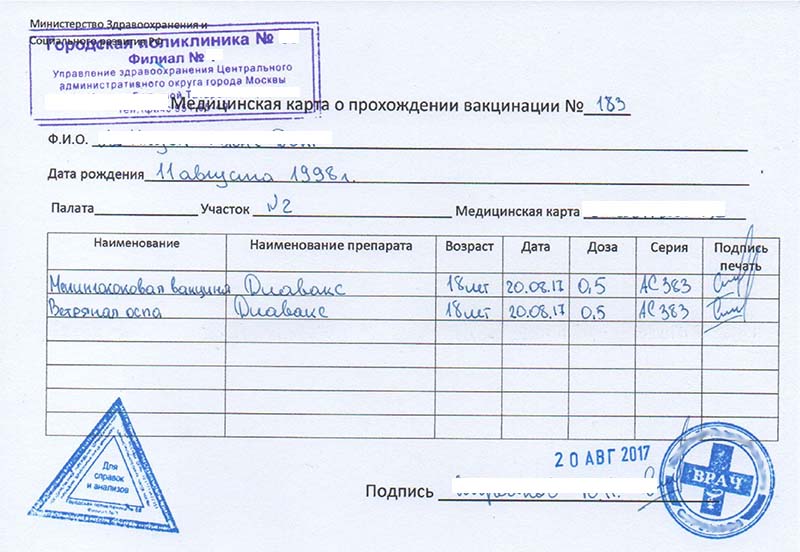 Министерство Здравоохранения и
Социального развития РФ
Городская поликлиника №
Филиал №
Управление здравоохранения Центрального
административного округа города Москвы
Медицинская карта о прохождении вакцинации № 183
Ф.И.О.
Дата рождения 11 августа 1998г.
Палата Участок №2 Медицинская карта
Наименование Наименование препарата Возраст Дата Доза Серия Подпись печать
Менингококовая вакцина Диавакс 18 лет 20.08.17 0,5 АС383
Ветряная оспа Диавакс 18 лет 20.08.17 0,5 АС383
Для
справок
и анализов
20 АВГ 2017
ВРАЧ
Подпись